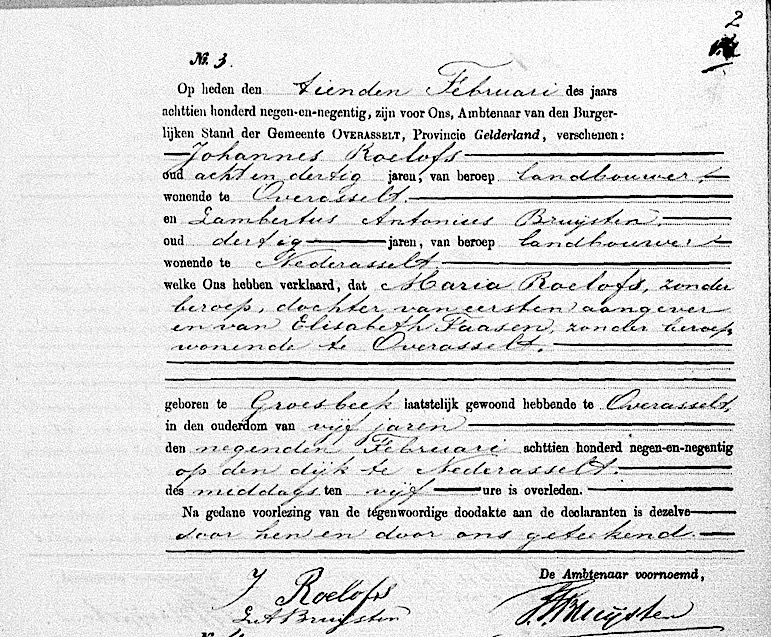 2
No. 3.
Op heden den tienden Februari des jaars
achttien honderd negen-en-negentig, zijn voor Ons, Ambtenaar van den Burger-
lijken Stand der Gemeente OVERASSELT, Provincie Gelderland, verschenen:
Johannes Roelofs
oud acht en dertig jaren, van beroep landbouwer
wonende te Overasselt.
en Lambertus Antonius Bruijsten.
oud dertig jaren, van beroep landbouwer
wonende te Nederasselt
welke Ons hebben verklaard, dat Maria Roelofs, zonder
beroep, dochter van eersten aangever
en van Elisabeth Faasen, zonder beroep,
wonende te Overasselt.
geboren te Groesbeek laatstelijk gewoond hebbende te Overasselt,
in den ouderdom van vijf jaren
den negenden Februari achttien honderd negen-en-negentig
op den dijk te Nederasselt.
des middags ten vijf ure is overleden.
Na gedane voorlezing van de tegenwoordige doodakte aan de declaranten is dezelve
door hen en door ons geteekend.
De Ambtenaar voornoemd,
J Roelofs
L A Bruijsten
Bruijsten